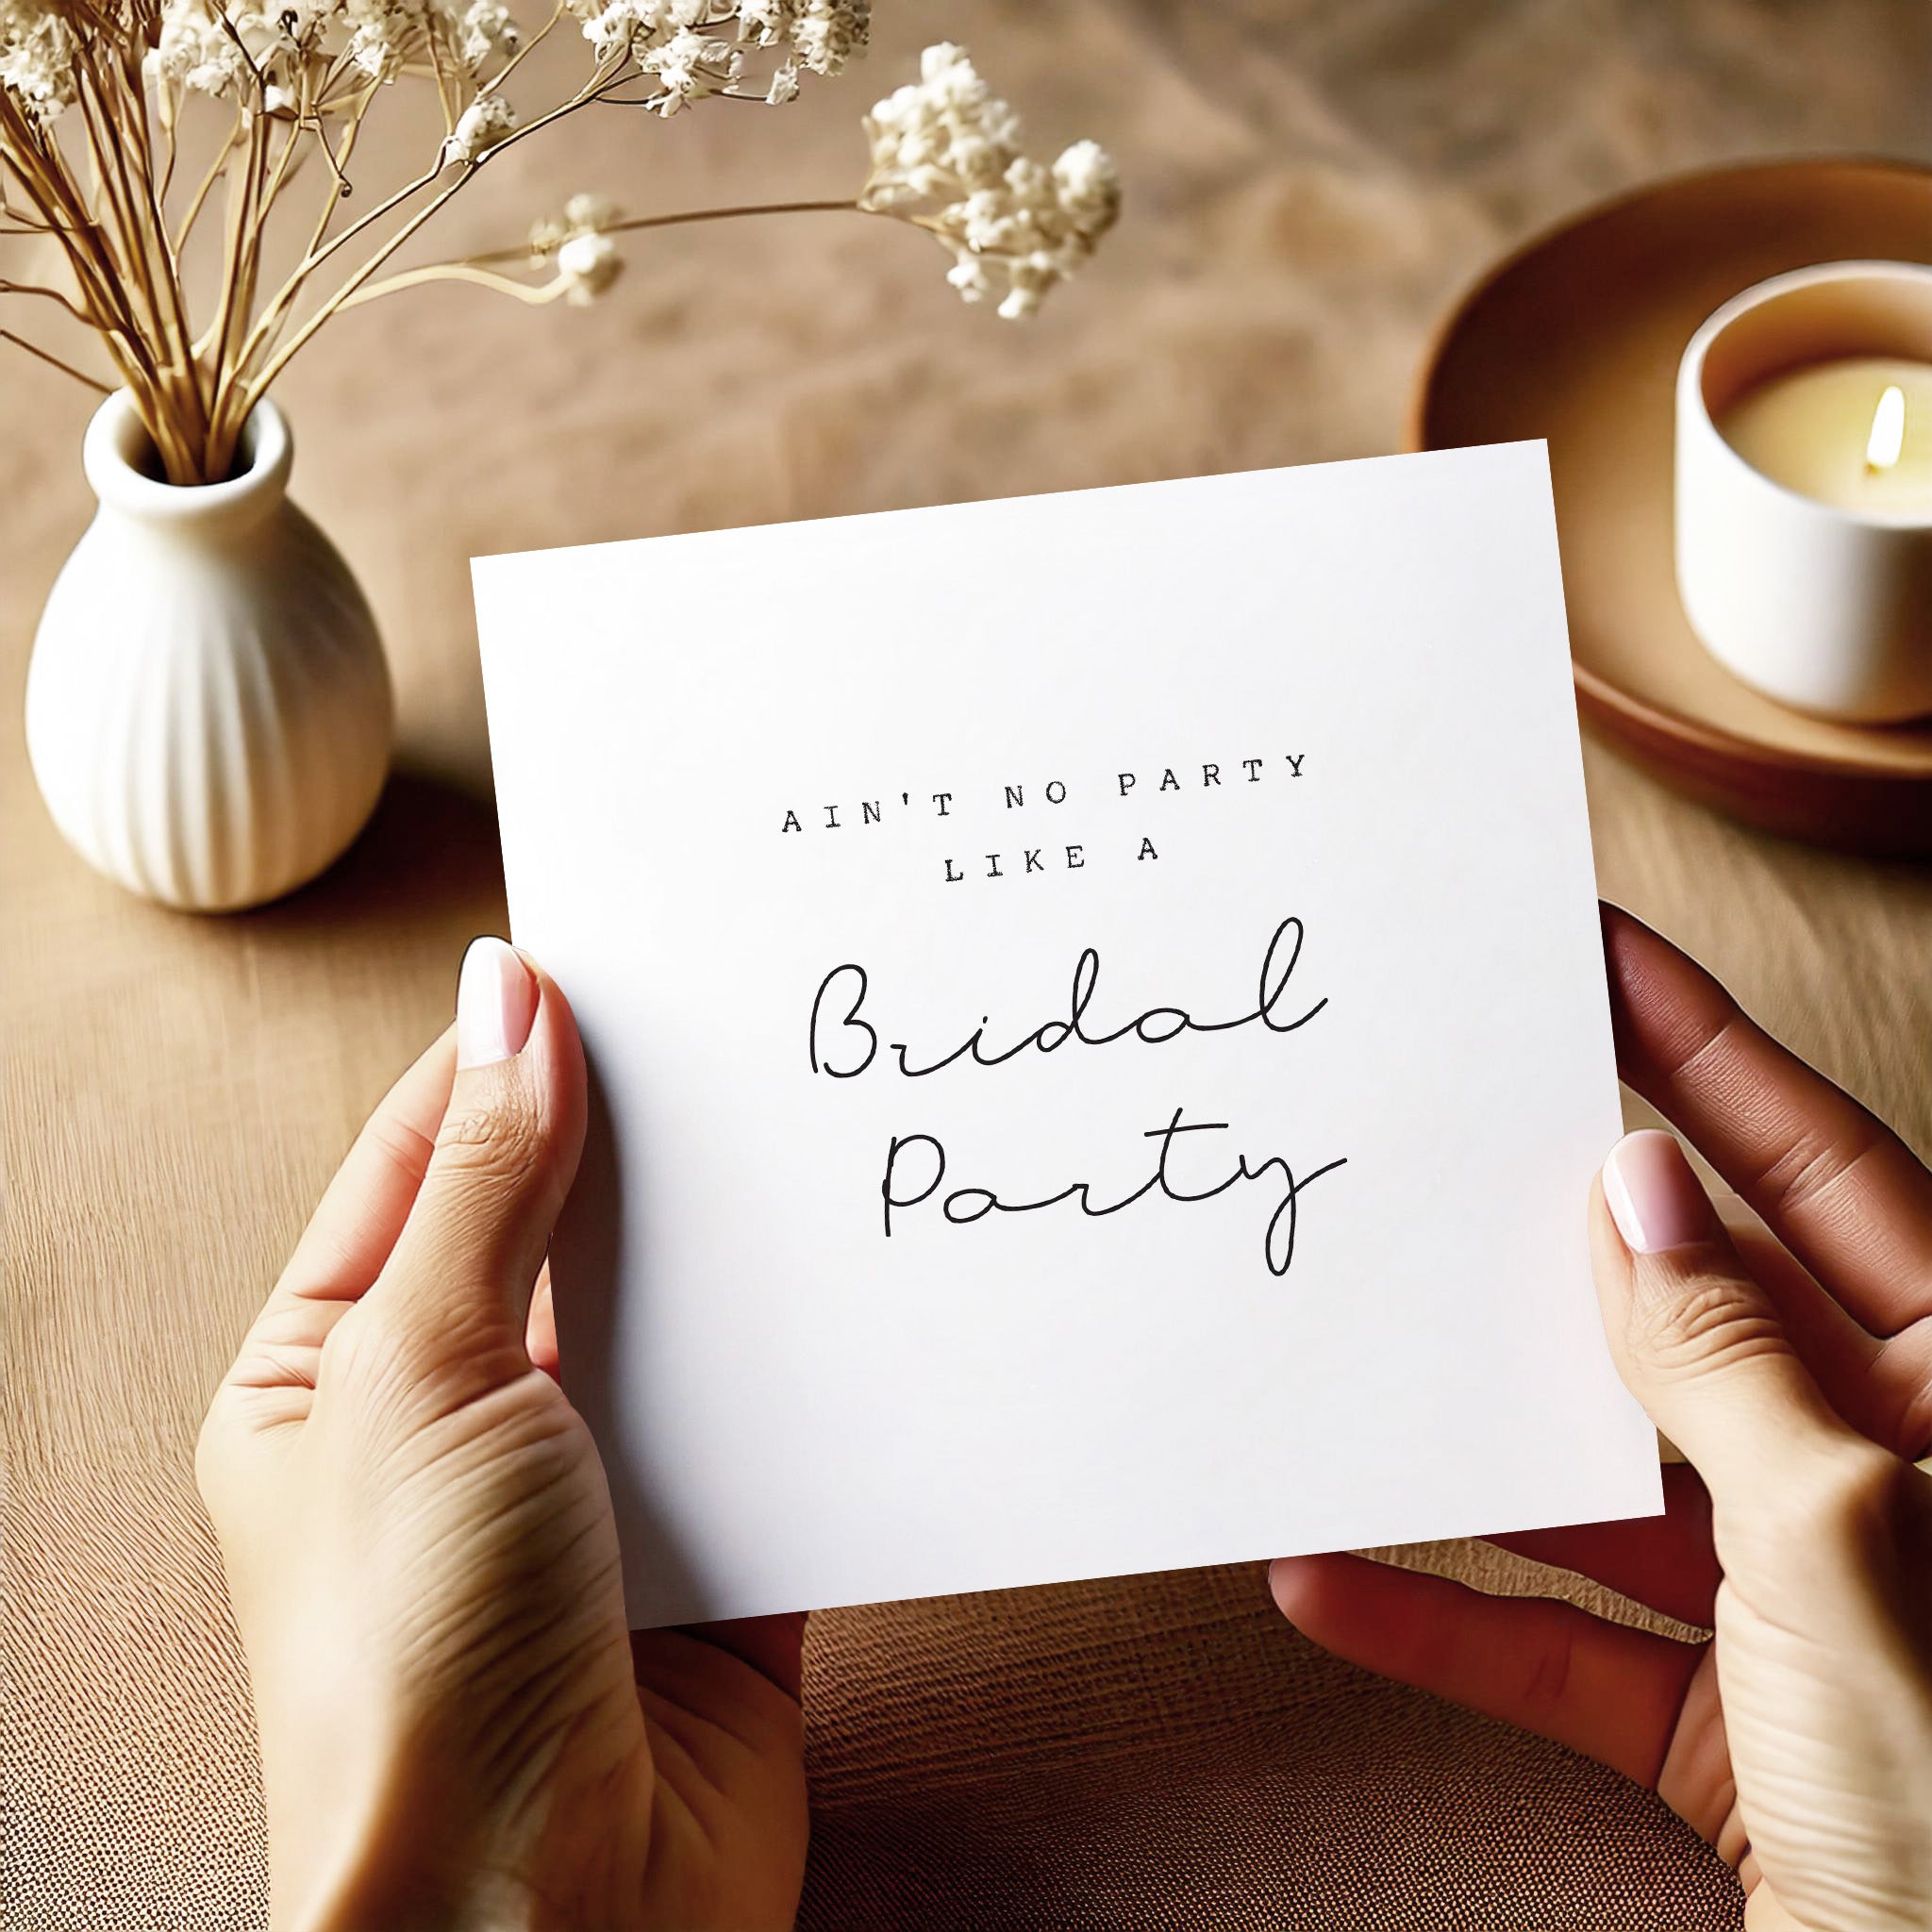 AIN'T NO PARTY
LIKE A
Bridal
Party